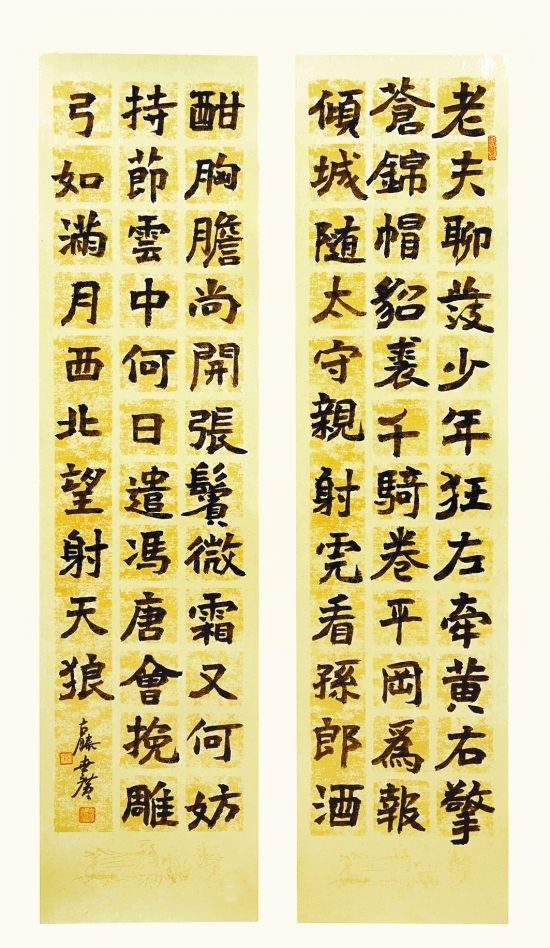 老夫聊發少年狂左牽黄右擎
蒼錦帽貂裘千騎卷平岡爲報
傾城随太守親射虎看孫郎酒
酣胸膽尚開張鬢微霜又何妨
持節雲中何日遣馮唐會挽雕
弓如滿月西北望射天狼
古藤